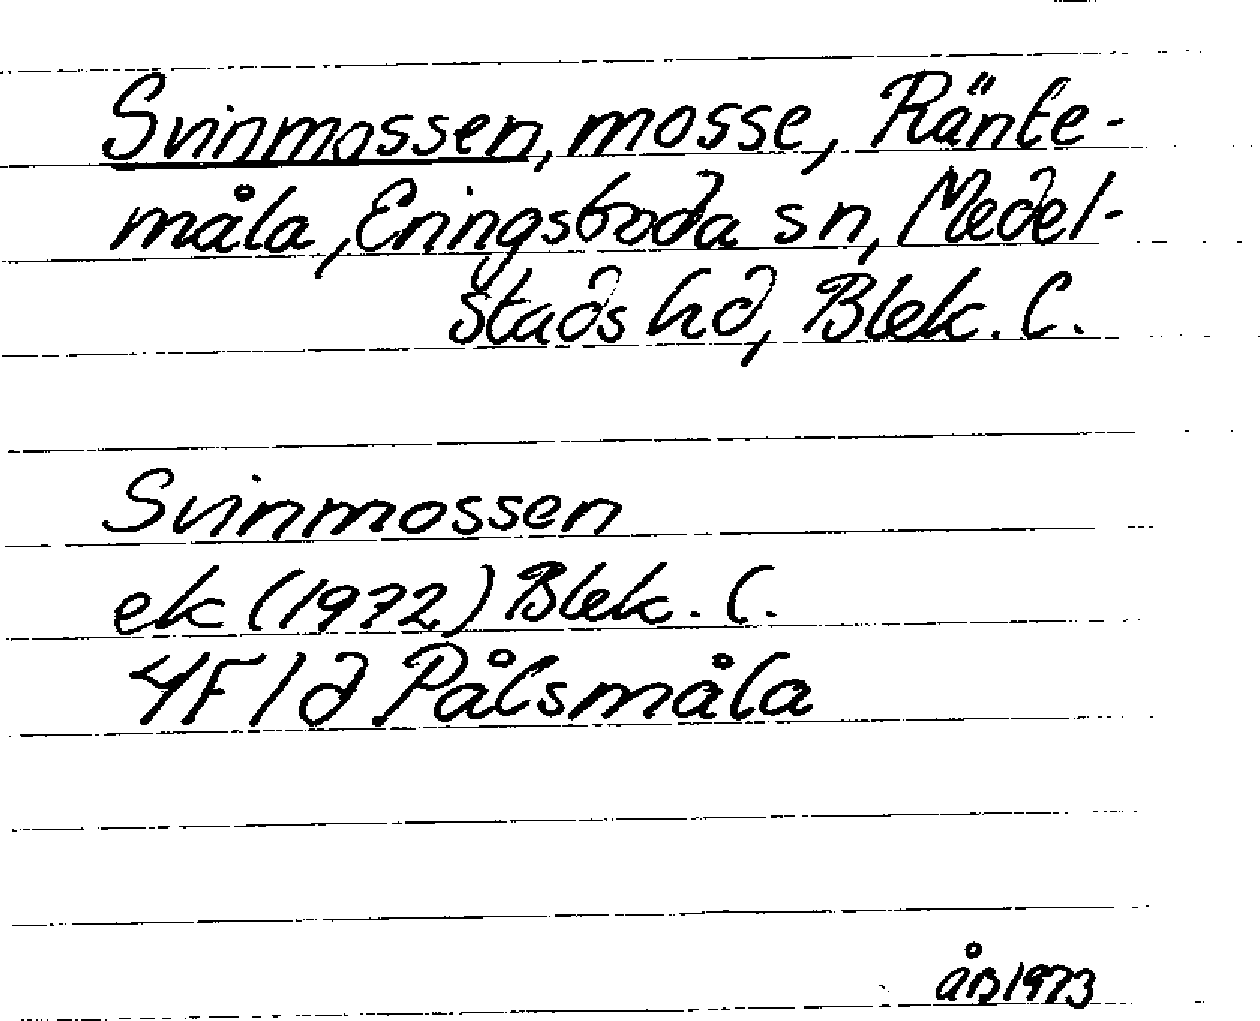 Svinmossen, mosse, Ränte-
måla, Eringsboda sn, Medel-
stads hd, Blek. l.
Svinmossen
ek (1972) Blek. l.
4F1d Pålsmåla
åb 1973